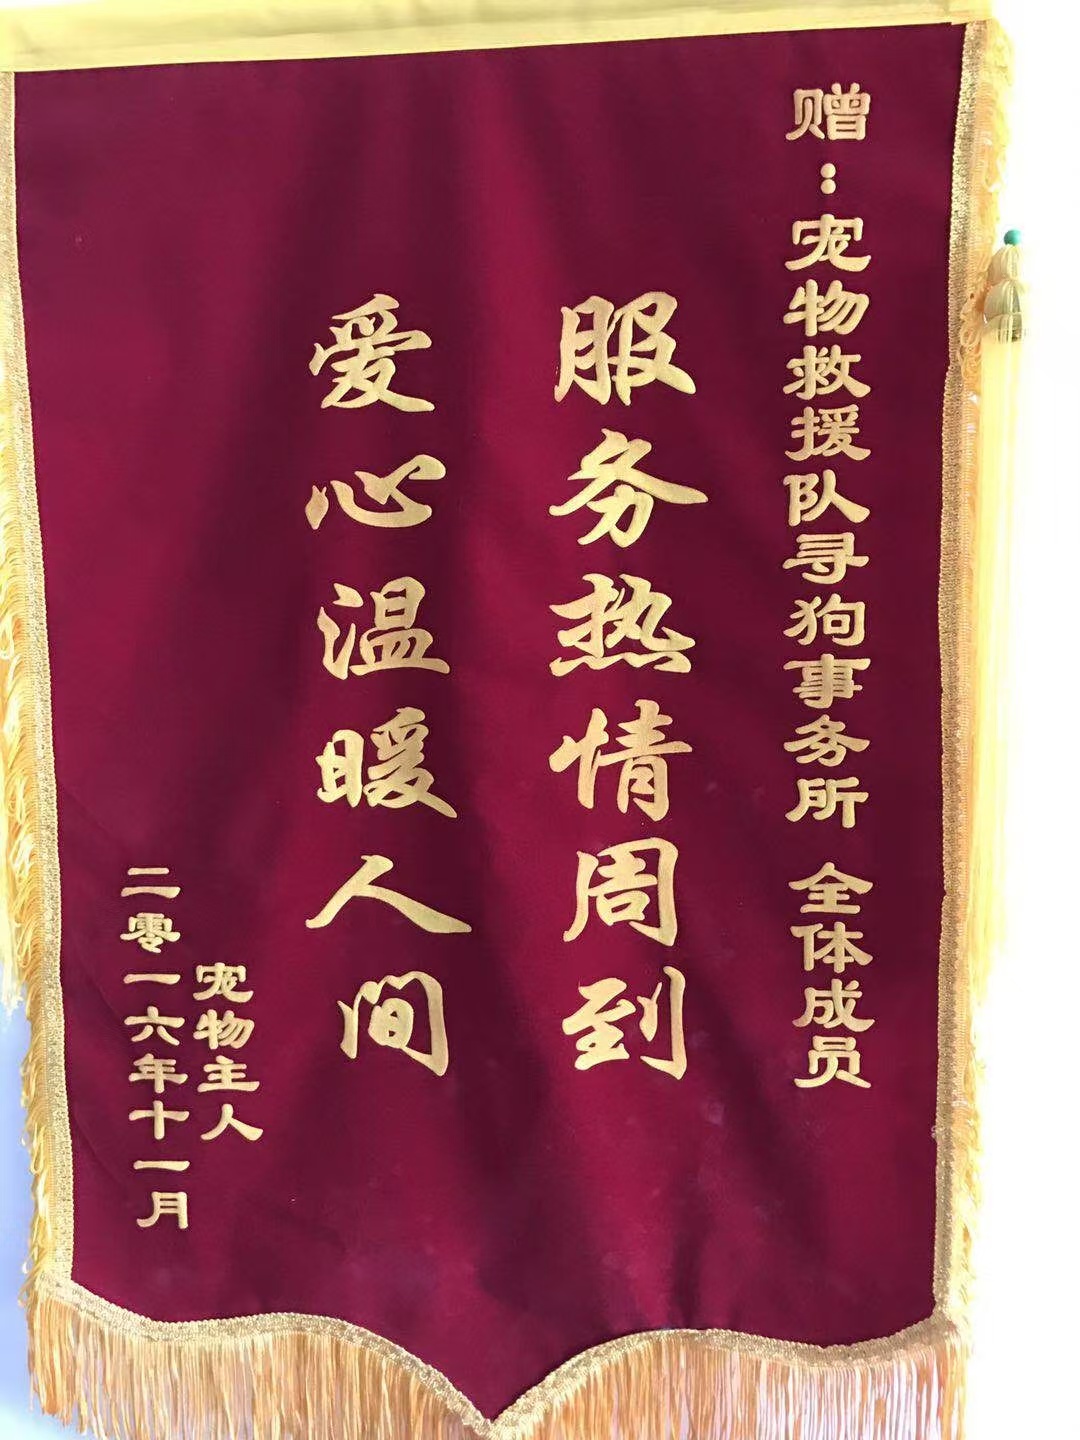 赠：宠物救援队寻狗事务所 全体成员
服务热情周到
爱心温暖人间
宠物主人
二零一六年十一月